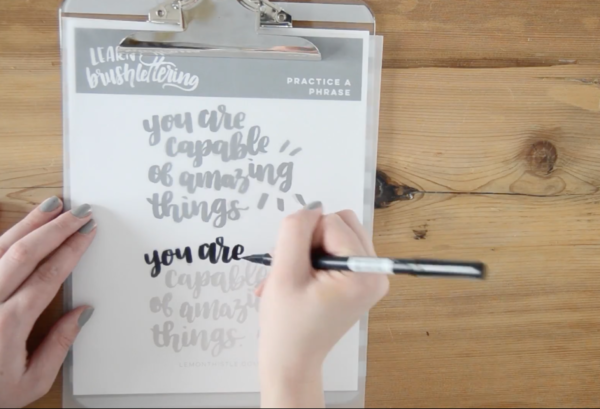 LEARN
brushlettering
PRACTICE A
PHRASE
you are
capable
of amazing
things
you are
capable
of amazi
things